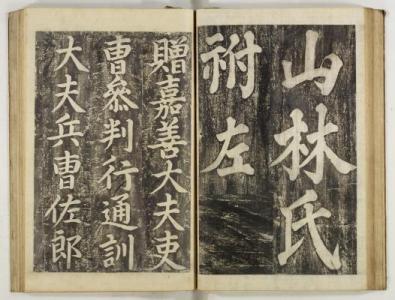 山林氏
祔左
贈嘉善大夫吏
曹叅判行通訓
大夫兵曹佐郎